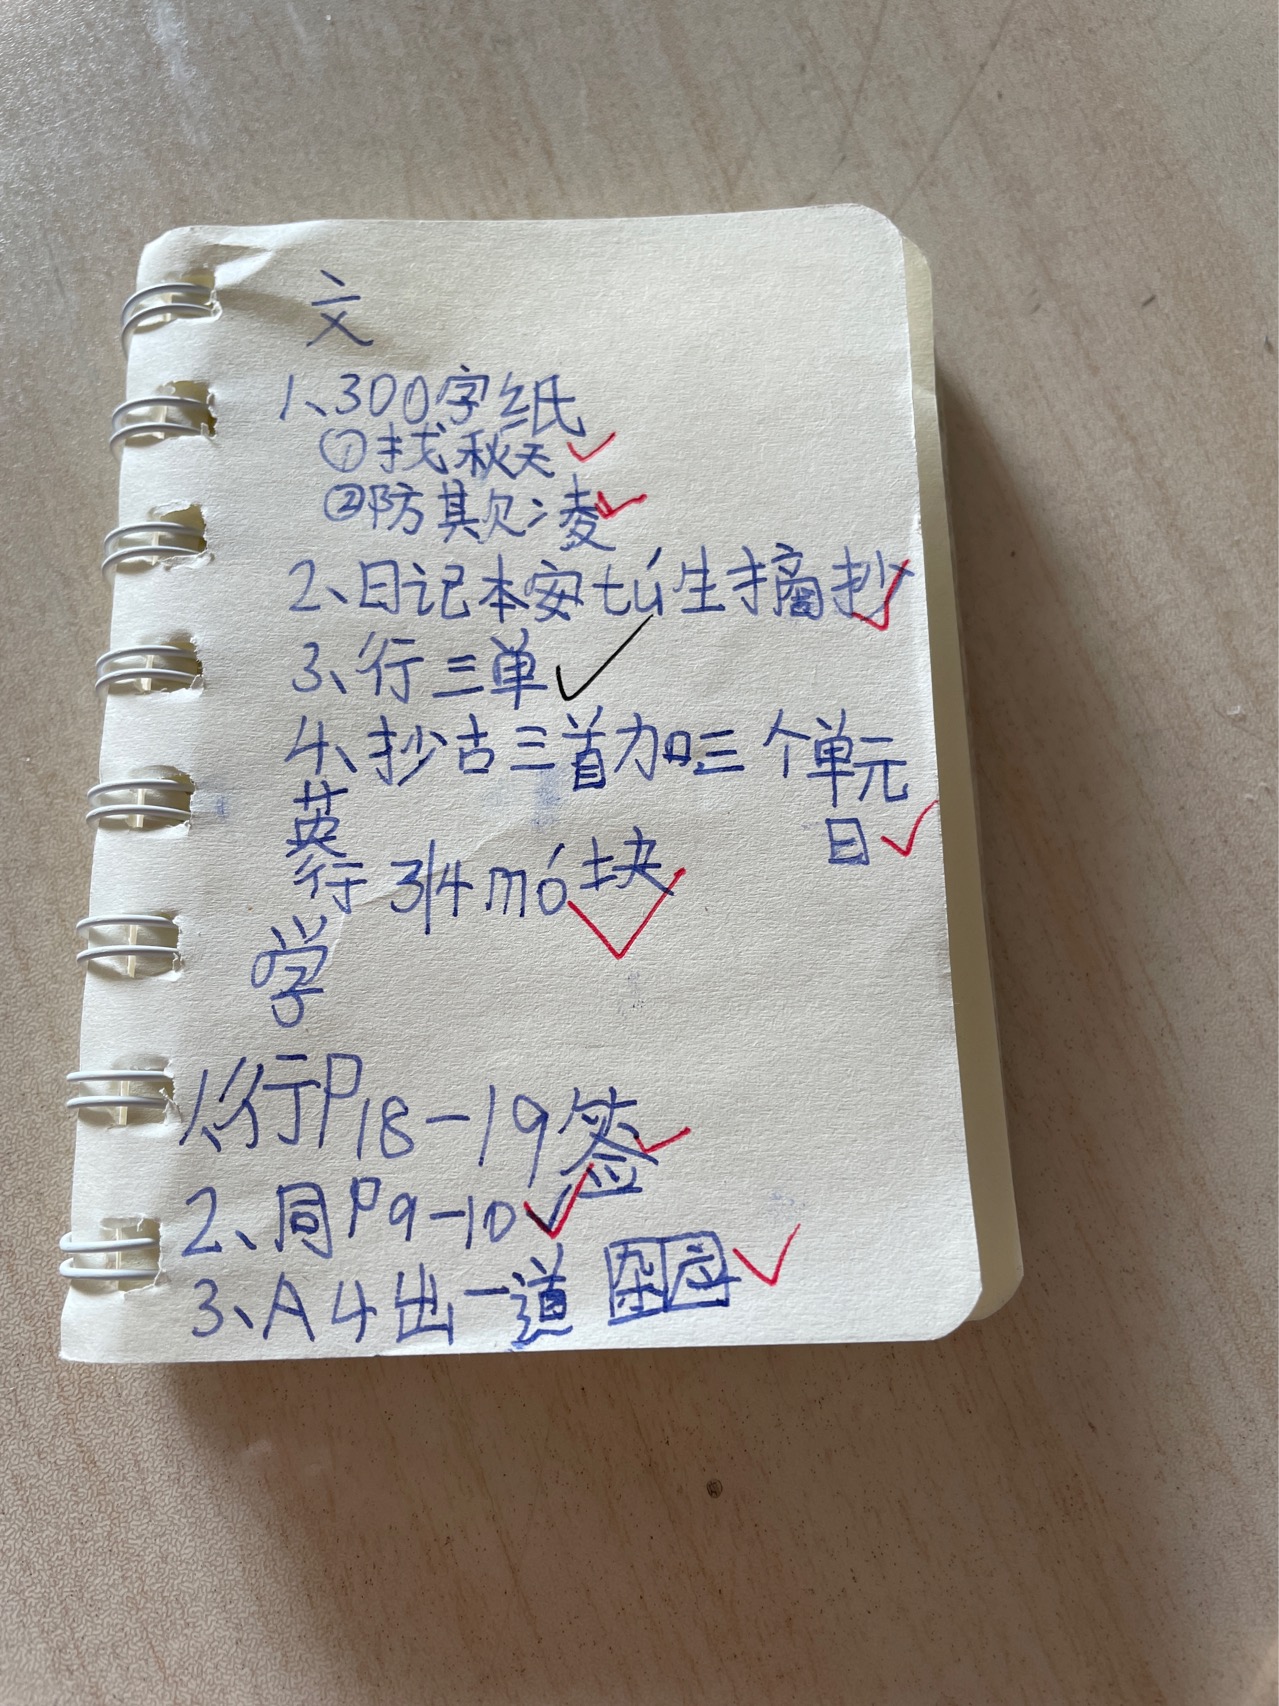 文
1、300字纸
①找秋天
②防欺凌
2、日记本安tú生摘抄
3、行三单
4、抄古三首加三个单元
日
英
行3/4mó块
学
1、行P18-19签
2、同P9-10
3、A4出一道